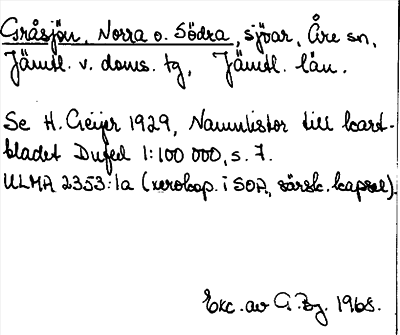 Gråsjön, Norra o. Södra, sjöar, Åre sn,
Jämtl. v. doms. tg, Jämtl. län.
Se H. Geijer 1929, Namnlistor till kart-
bladet Dufed 1:100 000, s. 7.
ULMA 2353:1a (xerokop. i SOA, särsk. kapsel).
Exc. av G. Bg. 1968.